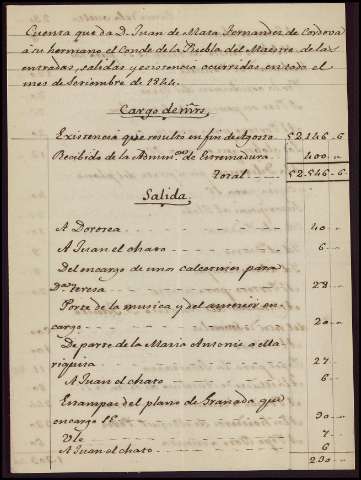 Cuenta que da D. Juan de Mata Fernandez de Cordova
a su hermano el Conde de la Puebla del Maestre de las
entradas, salidas y existencia ocurridas en todo el
mes de Setiembre de 1844.
Cargo de mrs.
Existencia que resultó en fin de Agosto 52.146..6
Recibido de la Admin.on de Estremadura 400..
Total 52.546..6
Salida
A Dorotea 40..
A Juan el chato 6..
Del encargo de unos calcetines para
D.a Teresa 28..
Porte de la musica y del anterior en-
cargo 20..
De parte de la Maria Antonia a ella
27..
A Juan el chato 6..
Estampar el plano de Granada que
encargo 90..
7
A Juan el chato 6
230..